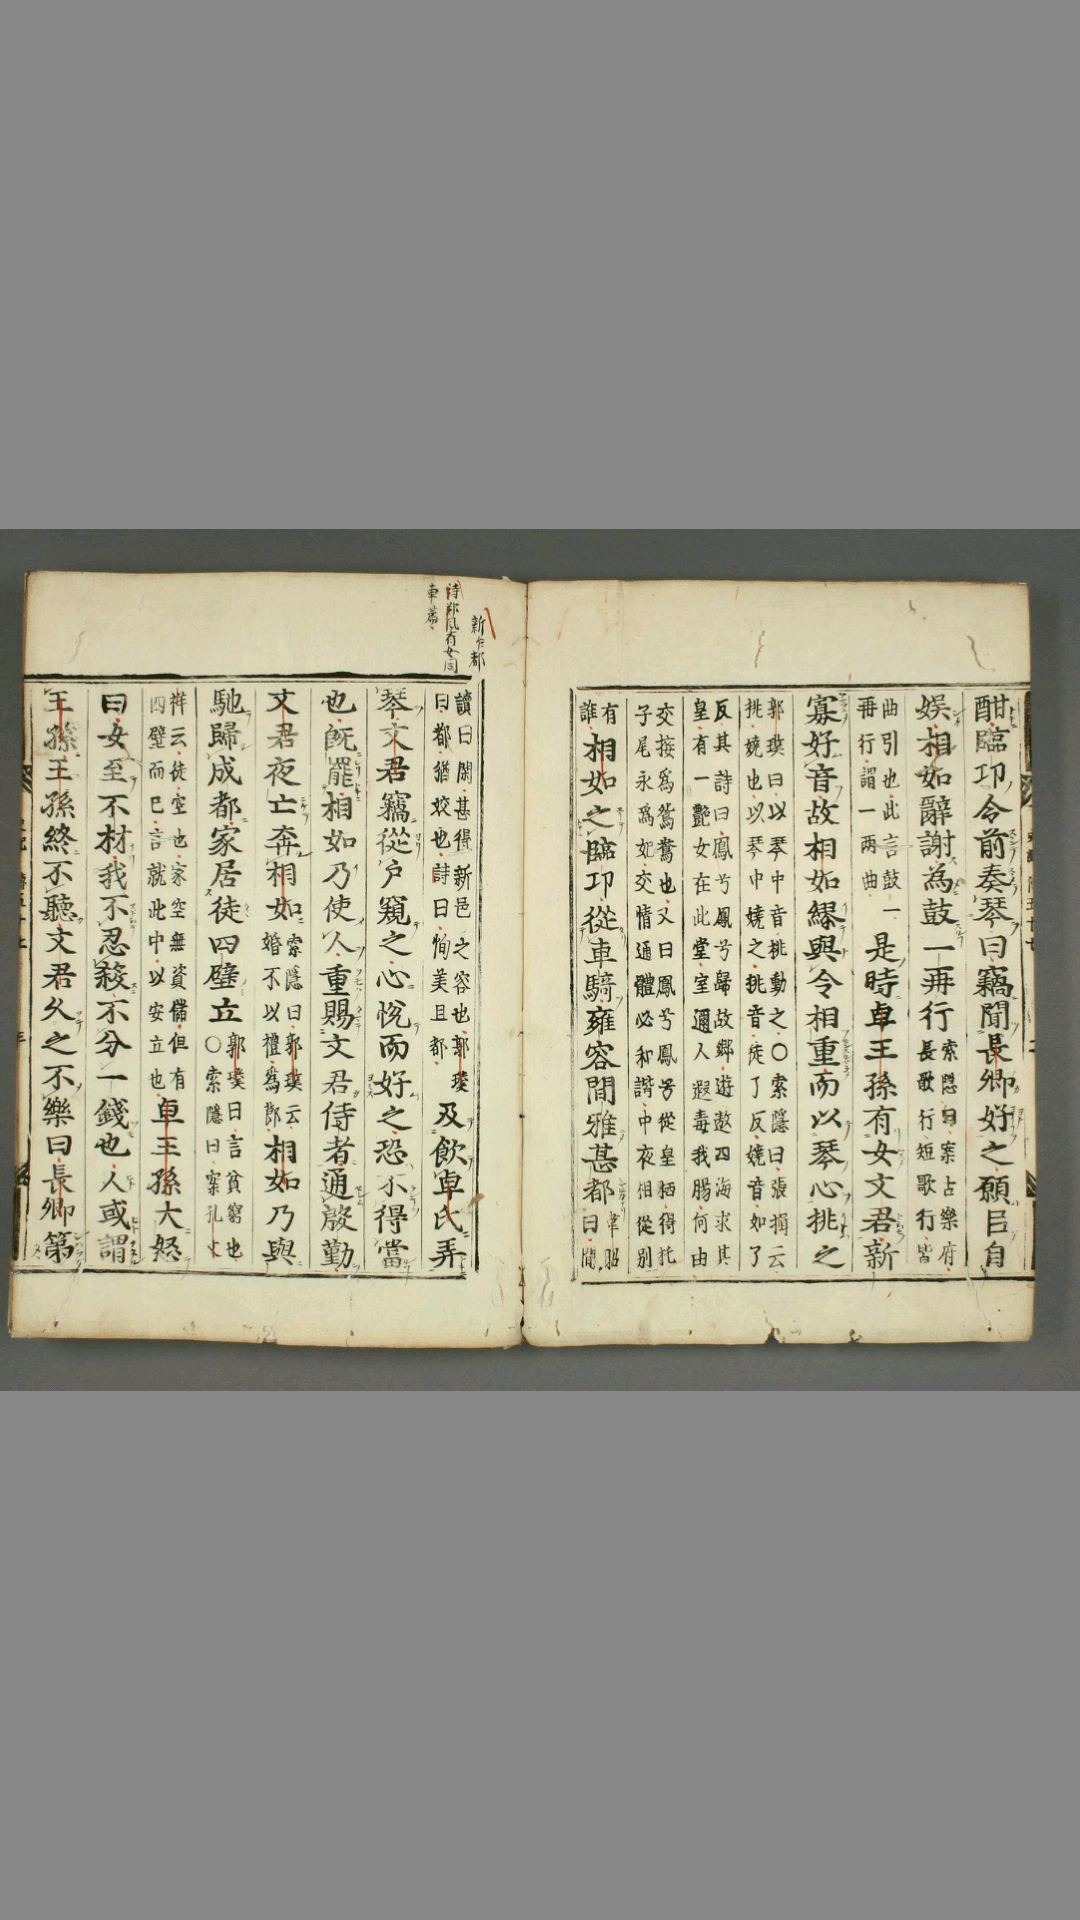 酣臨卭令前奏琴曰竊聞長卿好之願目自
娯相如辭謝為鼓一再行
索隱曰案占樂府
長歌行短歌行皆
曲引也此言鼓一
再行謂一兩曲
是時卓王孫有女文君新
寡好音故相如繆與令相重而以琴心挑之
郭璞曰以琴中音挑動之〇索隱曰張揖云
挑嬈也以琴中嬈之挑音徒了反嬈音如了
反其詩曰鳳兮鳳兮歸故鄉遊遨四海求其
皇有一艷女在此堂室邇人遐毒我腸何由
交接爲鴛鴦也又曰鳳兮鳳兮從皇栖得托
子尾永爲妃交情通體必和諧中夜相從別
有
誰
相如之臨卭從車騎雍容閒雅甚都
韋昭
曰閒
讀曰閑甚得新邑之容也郭璞
曰都猶姣也詩曰恂美且都
及飲卓氏弄
琴文君竊從戸窺之心悅而好之恐不得當
也旣罷相如乃使人重賜文君侍者通殷勤
文君夜亡奔相如
索隱曰郭璞云
婚不以禮爲郎
相如乃與
馳歸成都家居徒四壁立
郭璞曰言貧窮也
〇索隱曰案孔文
祥云徒空也家空無資儲但有
四壁而巳言就此中以安立也
卓王孫大怒
曰女至不材我不忍殺不分一錢也人或謂
王孫王孫終不聽文君久之不樂曰長卿第
新乍都
詩鄭風有女同
車篇